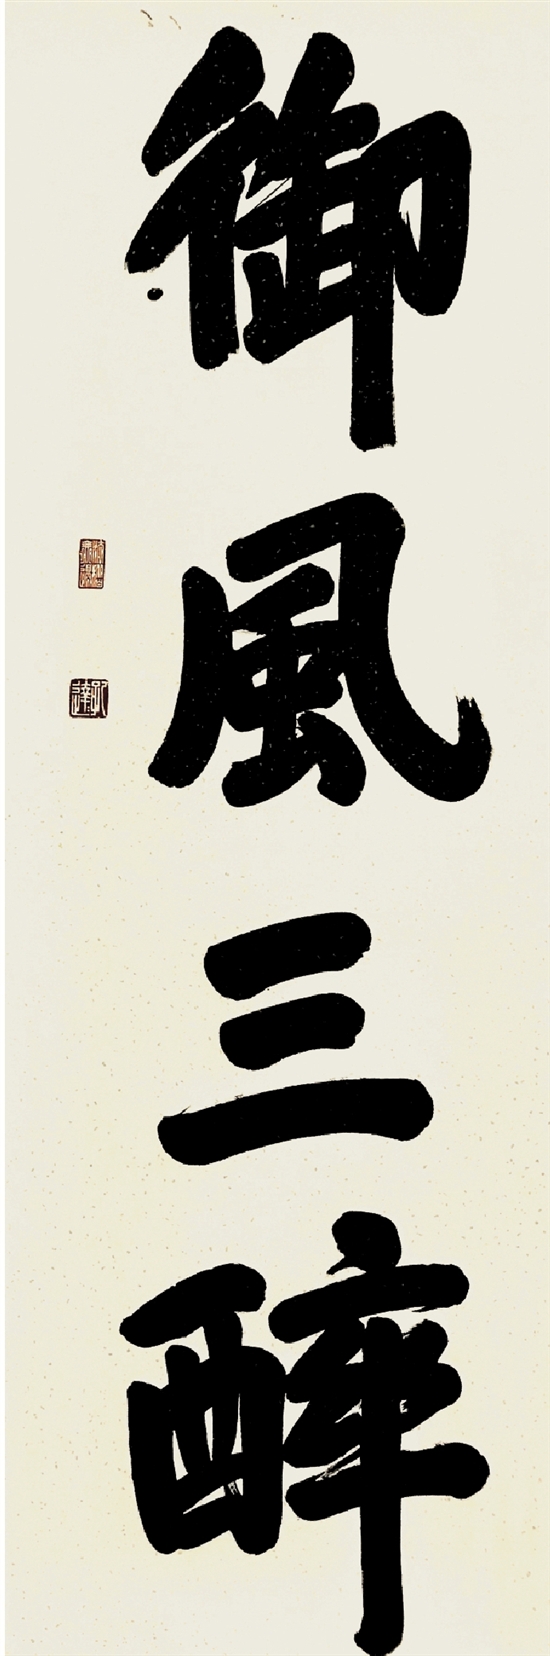 御風三醉